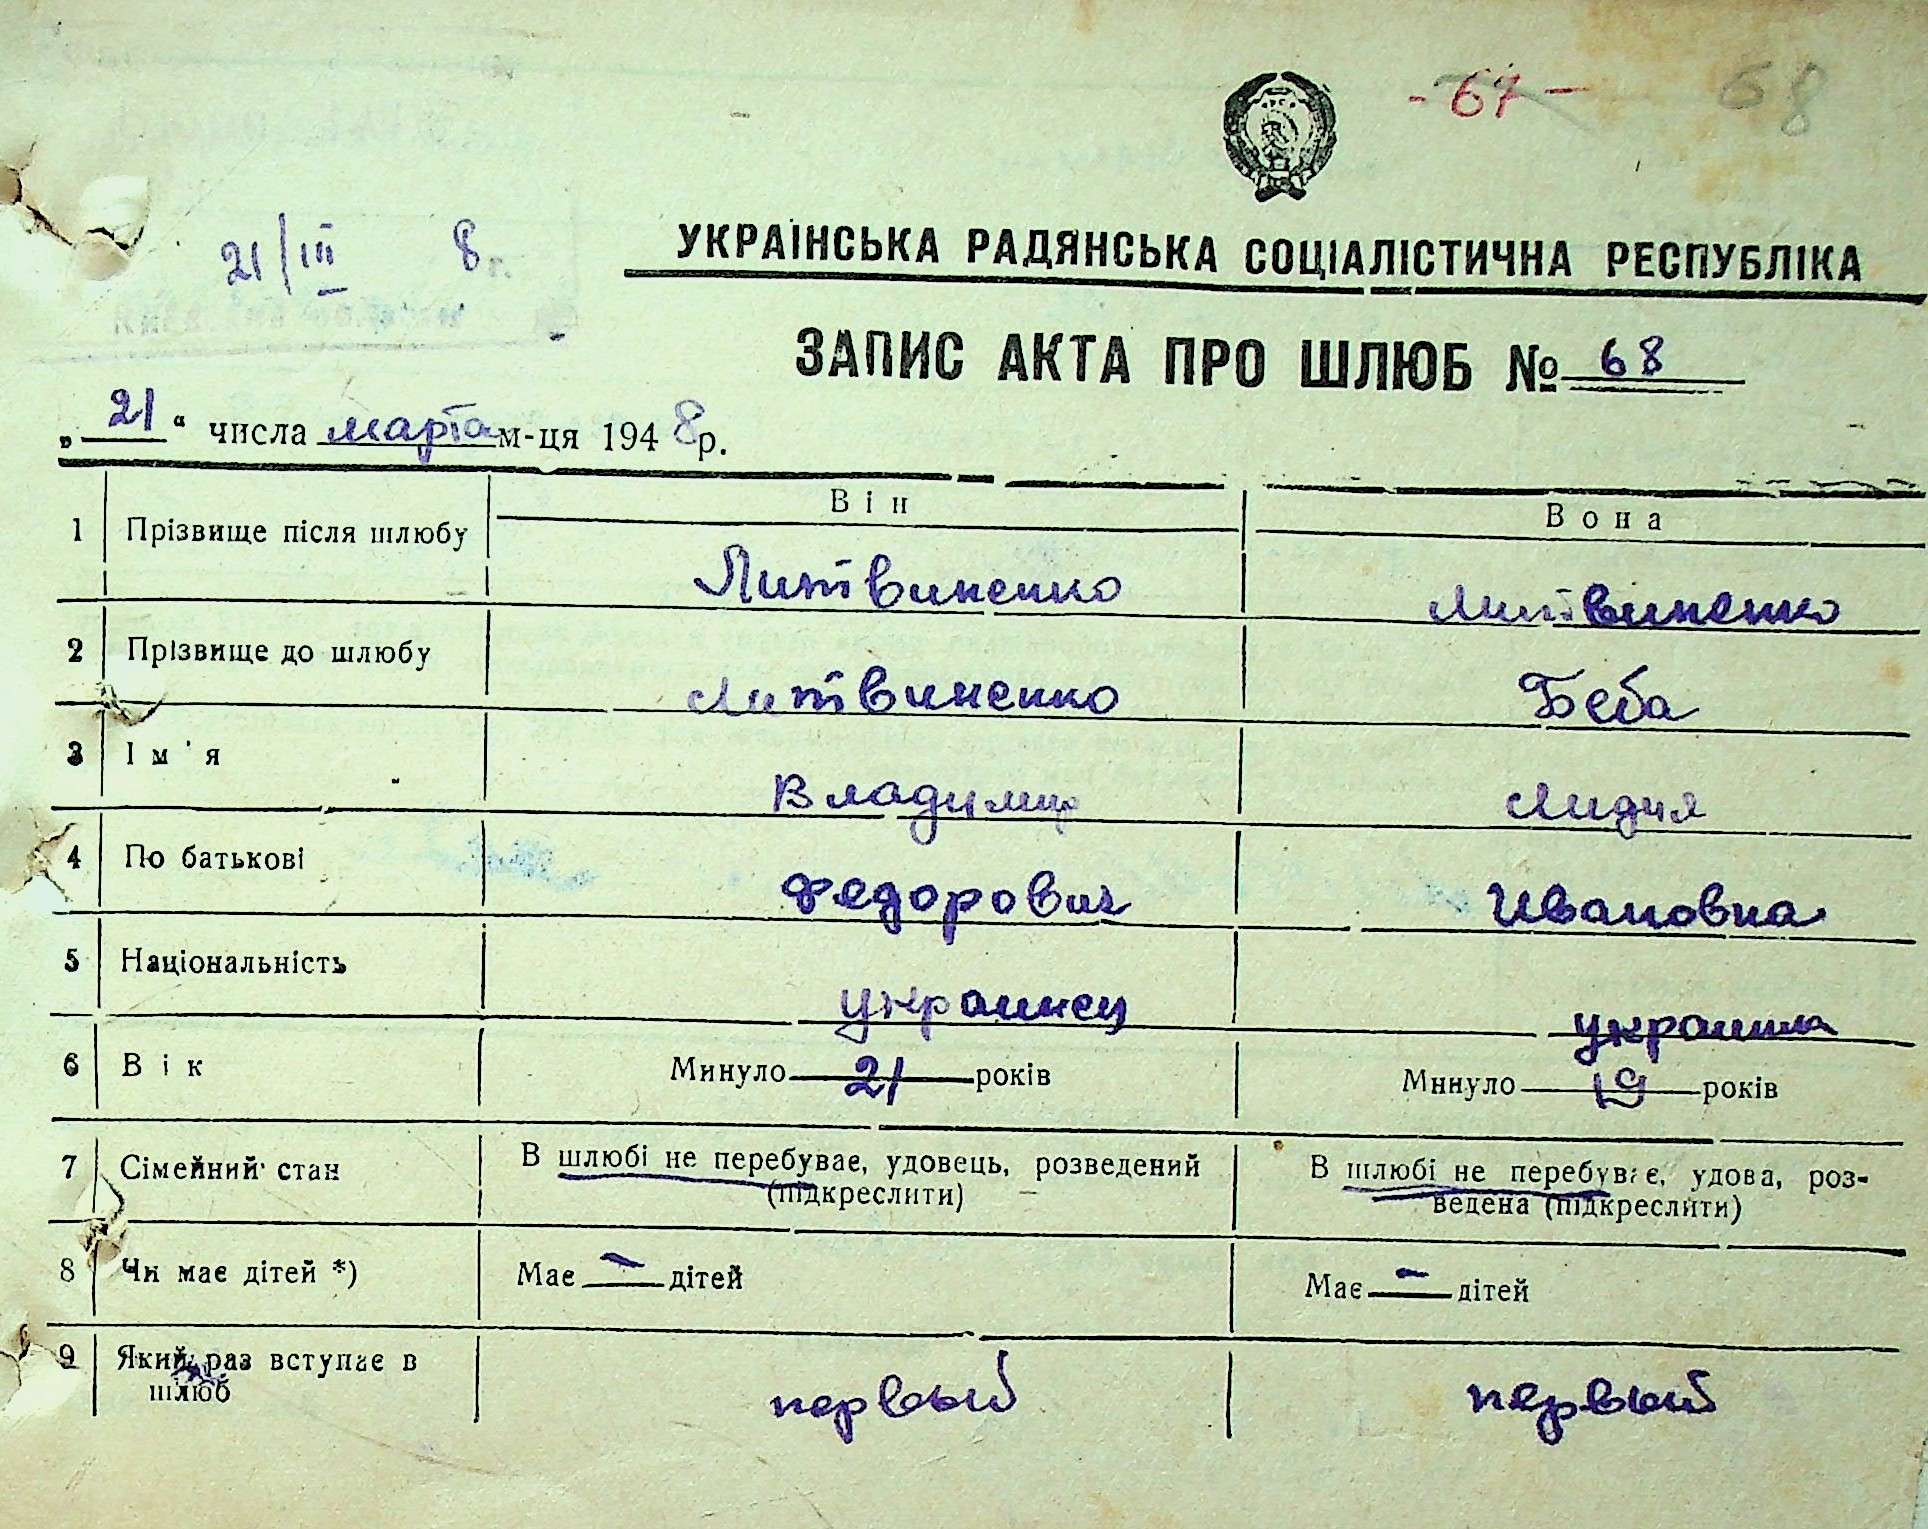 - 67 - 68
21/III 8 г.
УКРАЇНСЬКА РАДЯНСЬКА СОЦІАЛІСТИЧНА РЕСПУБЛІКА
ЗАПИС АКТА ПРО ШЛЮБ № 68
„ 21 “ числа марта м-ця 1948 р.
Він Вона
1 Прізвище після шлюбу Литвиненко Литвиненко
2 Прізвище до шлюбу Литвиненко Беба
3 Ім'я Владимир Лидия
4 По батькові Федорович Ивановна
5 Національність украинец украинка
6 Вік Минуло 21 років Минуло 19 років
7 Сімейний стан В шлюбі не перебуває, удовець, розведений В шлюбі не перебуває, удова, роз-
(підкреслити) ведена (підкреслити)
8 Чи має дітей *) Має — дітей Має — дітей
9 Який раз вступає в
шлюб первый первый